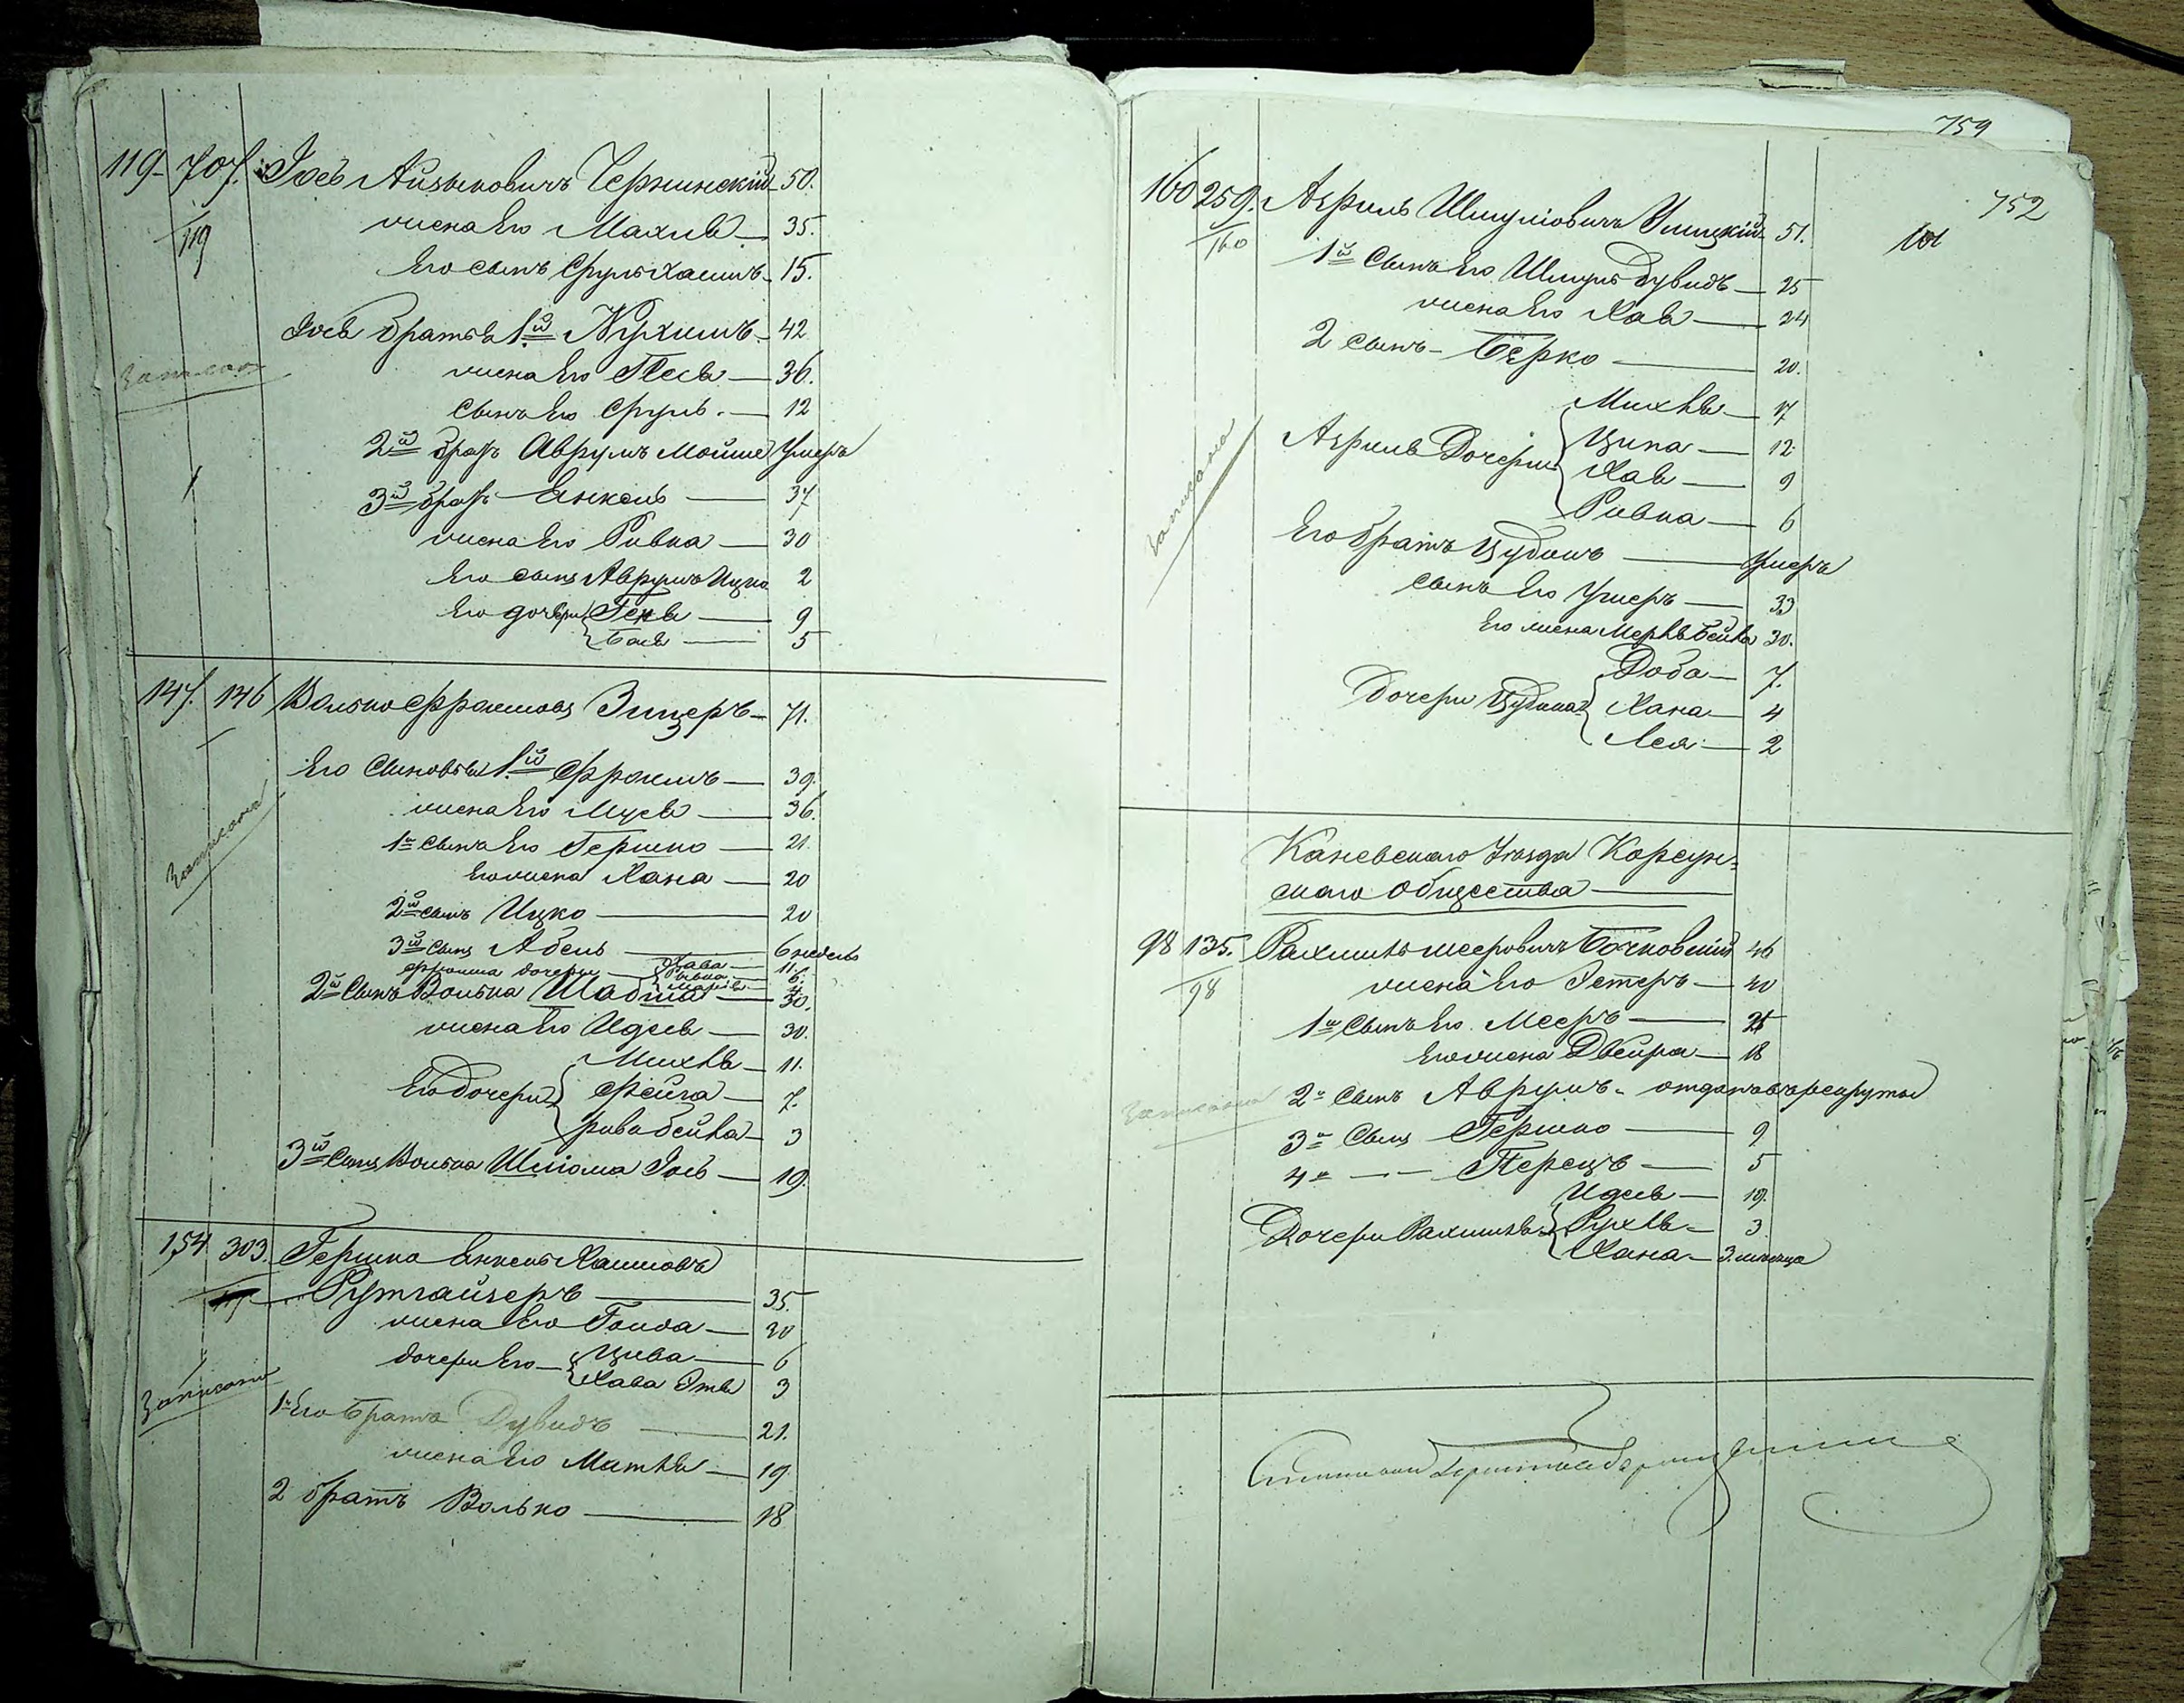 119 707. Іосъ Айзиковичъ Чернинскій 50.
119
жена его Махля 35.
Его сынъ Сруль Хаимъ 15.
Іося братья 1й Нухимъ 42
Записано
жена его Песя 36.
сынъ его Сруль 12
2й братъ Аврумъ Мошко умеръ
3й братъ Янкель 37
жена его Ривка 30
Его сынъ Аврумъ Ицко 2
Его дочери Геня 9
Бася 5
147. 146 Волько Фроимовъ Зицеръ 71.
Его сыновья 1й Фроимъ 39.
жена его Муся 36.
Записано
1й сынъ его Гершко 21.
Его жена Хана 20
2й сынъ Ицко 20
3й сынъ Абель 6 недель
Фроима дочери Хава 11.
Ривка
2й сынъ Волька Шабшай 30.
жена его Идся 30.
Михля 11.
Его дочери Фейга 7.
рива бейла 3
3й сынъ Волька Шлiома Іось 19.
154 303. Гершко Янкель Хаимовъ
Рутгайзеръ 35.
жена его Голда 30
дочери его Цива 6
Хава Этя 3
Записано
1й Его братъ Дувидъ 21.
жена его Матля 19.
2 братъ Волько 18
759
752
160 259. Азриль Шмуліовичъ Улицкій 51.
160
1й сынъ его Шмуль Дувидъ 25
жена его Хая 24
2 сынъ Берко 20.
Михля 17
Азриля Дочери Ципа 12.
Хая 9
Ривка 6
Записано
Его братъ Цудикъ умеръ
сынъ его Ушеръ 33
Его жена Мерля Бейла 30.
Доба 7.
Дочери Цудика Хана 4
Лея 2
Каневскаго Уѣзда Корсун-
скаго Общества
98 135. Рахмиль Мееровичъ Бочковскій 46
98
жена его Эстеръ 40
1й сынъ его Мееръ 21
Его жена Двейра 18
Записано
2й сынъ Аврумъ отданъ въ рекруты
3й сынъ Гершко 9
4й Перецъ 5
Идся 19.
Дочери Рахмиля Рухля 3
Хана 3. месяца